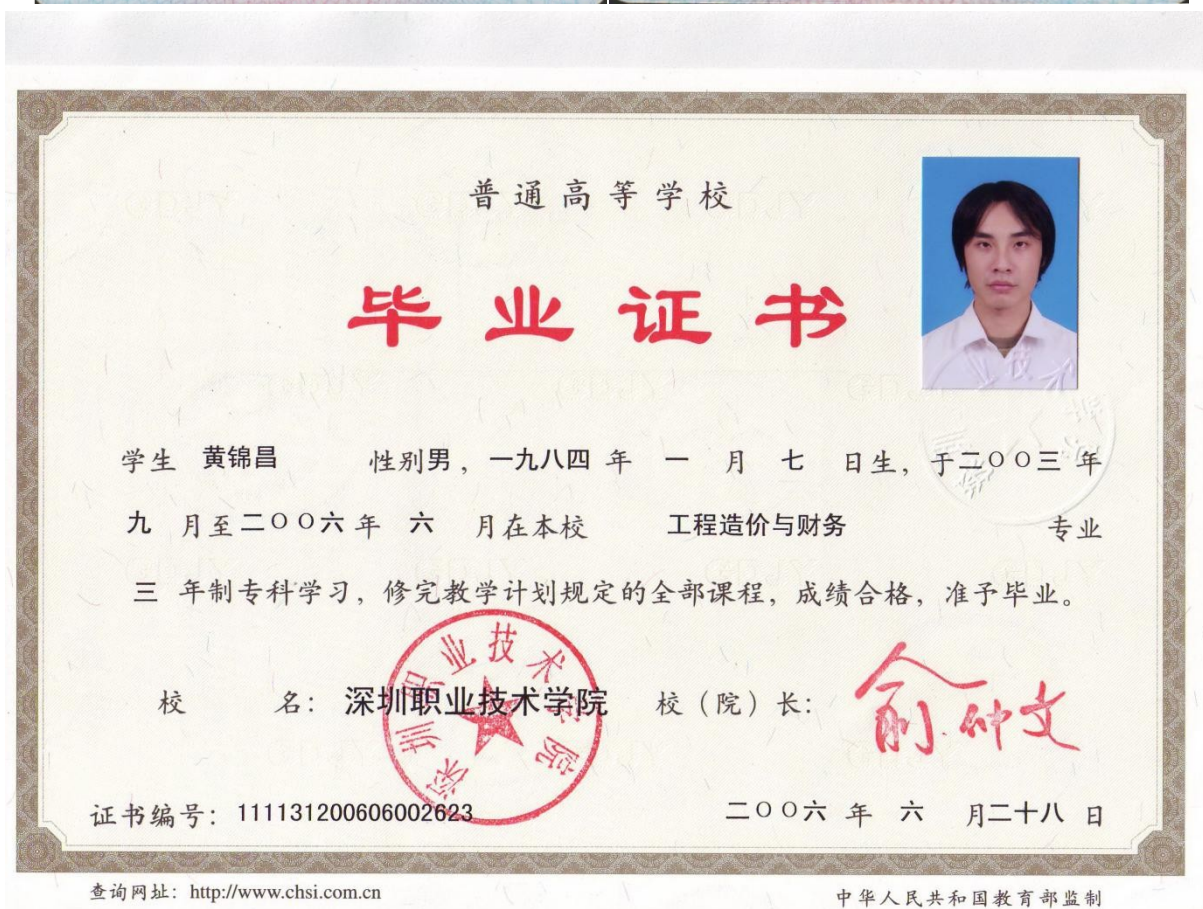 普通高等学校
毕业证书
学生 黄锦昌 性别男，一九八四 年 一 月 七 日生，于二〇〇三 年
九 月至二〇〇六年 六 月在本校 工程造价与财务 专业
三 年制专科学习，修完教学计划规定的全部课程，成绩合格，准予毕业。
深圳职业技术学院
校 名：深圳职业技术学院 校（院）长：俞仲文
证书编号：111131200606002623 二〇〇六 年 六 月二十八 日
查询网址：http://www.chsi.com.cn 中华人民共和国教育部监制